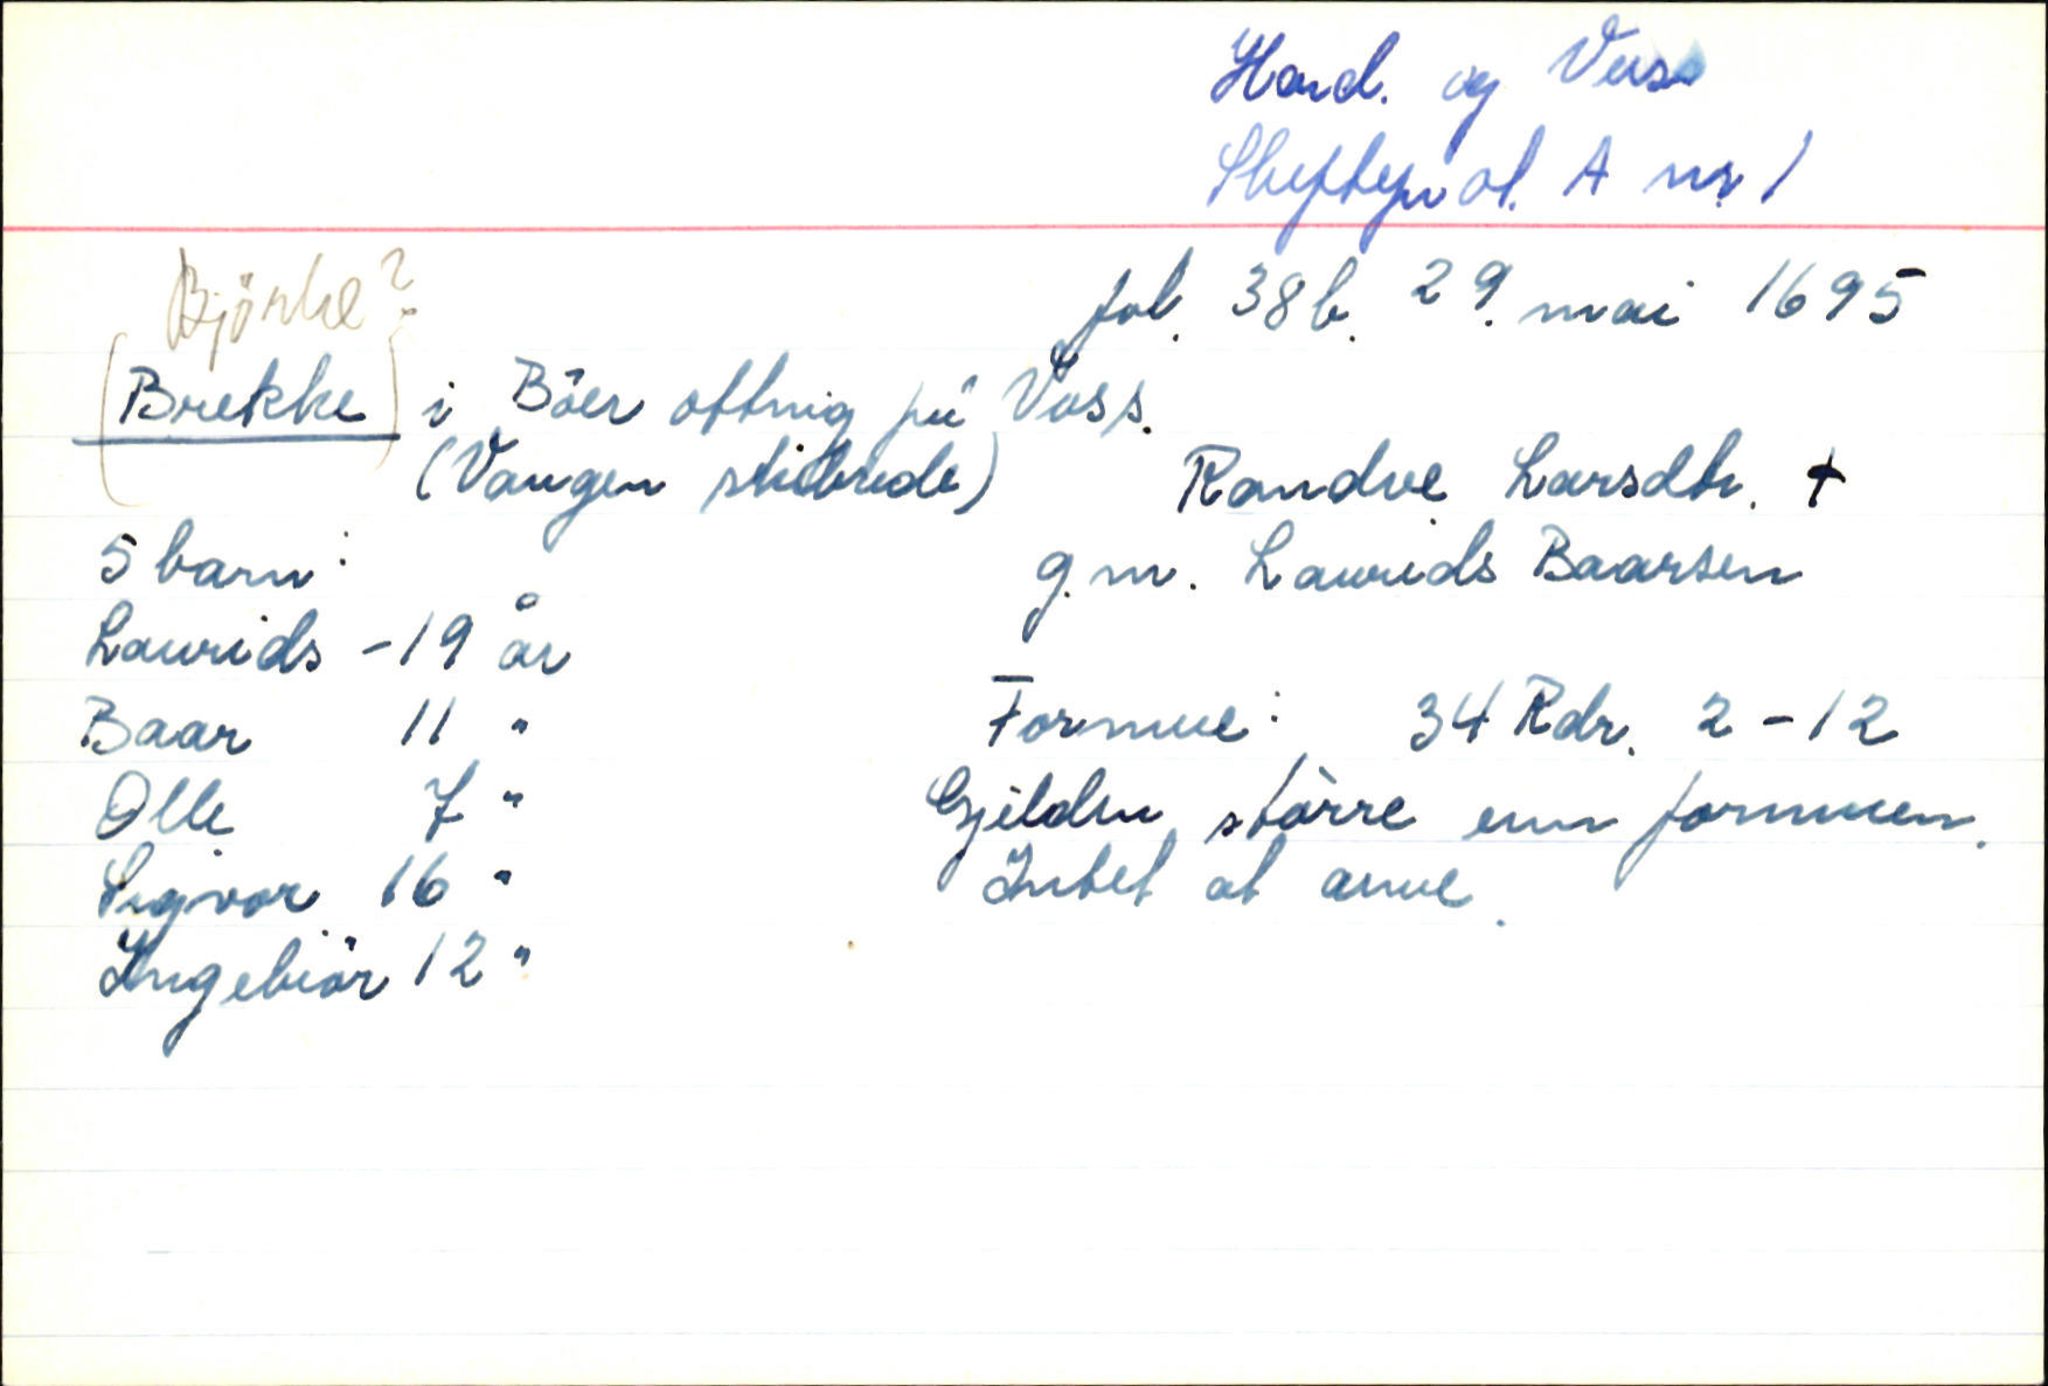 Hard. og Voss
Skifteprot. A nr. 1
Björke?
fol. 38b. 29. mai 1695
(Brekke) i Böer ottnig på Voss.
(Vangen skibrede)
Randve Larsdtr. †
5 barn:
g.m. Laurids Baarsen
Laurids - 19 år
Baar 11 "
Formue: 34 Rdr. 2 - 12
Olle 7 "
Gjelden större enn formuen.
Sigvor 16 "
Intet at arve.
Ingebiör 12 "